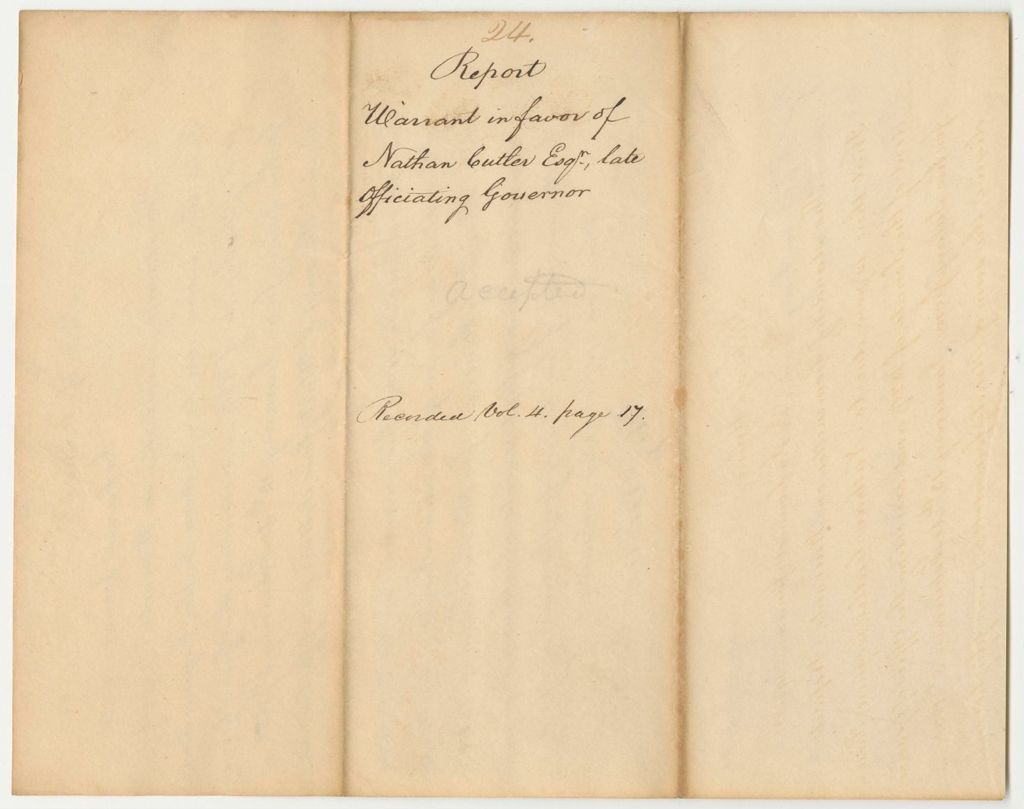 24.
Report
Warrant in favor of
Nathan Cutler Esqr., late
Officiating Governor
accepted
Recorded Vol. 4. page 17.